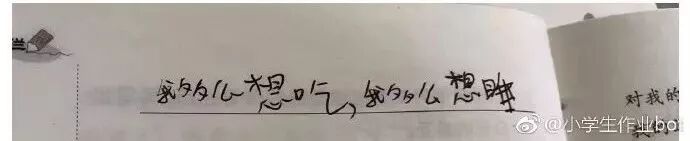 栏
我多么想吃,我多么想睡
对我的
我的
@小学生作业bot